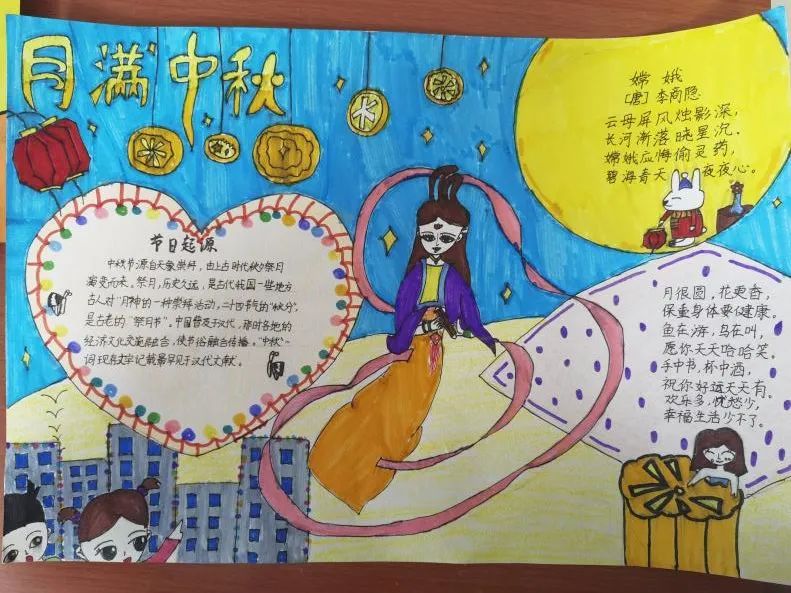 月满中秋
节日起源
中秋节源自天象崇拜，由上古时代秋夕祭月
演变而来。祭月，历史久远，是古代我国一些地方
古人对“月神”的一种崇拜活动，二十四节气的“秋分”，
是古老的“祭月节”。中国普及于汉代，那时各地的
经济文化交流融合，使节俗融合传播。“中秋”一
词现存文字记载最早见于汉代文献。
嫦娥
[唐]李商隐
云母屏风烛影深，
长河渐落晓星沉。
嫦娥应悔偷灵药，
碧海青天夜夜心。
月很圆，花更香，
保重身体要健康。
鱼在海，鸟在叫，
愿你天天哈哈笑。
手中书，杯中酒，
祝你好运天天有。
欢乐多，忧愁少，
幸福生活少不了。